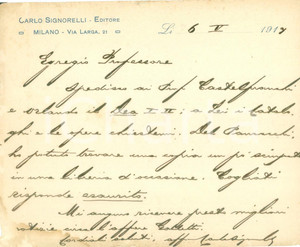 CARLO SIGNORELLI - EDITORE
MILANO - VIA LARGA, 21
Li 6 V 1917
Egregio Professore
Spedisco ai Prof. Castelfranchi
e Orlando il; a Lei i catalo
ghi e le opere chiestemi. Del
ho potuto trovare una copia un po' sciupata
in una libreria d'occasione. Cogliati
risponde esaurito.
Mi auguro ricevere presto migliori
notizie circa l'affare
Cordiali saluti. aff